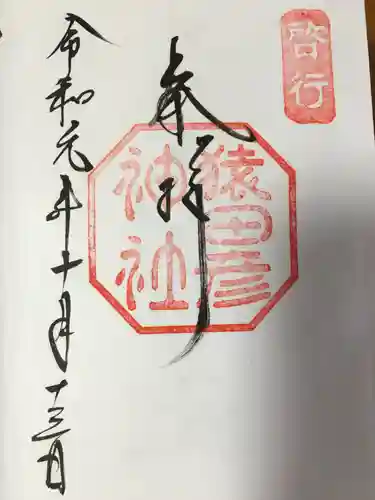 啓行
奉拝
猿田彦
神社
令和元年十月十三日